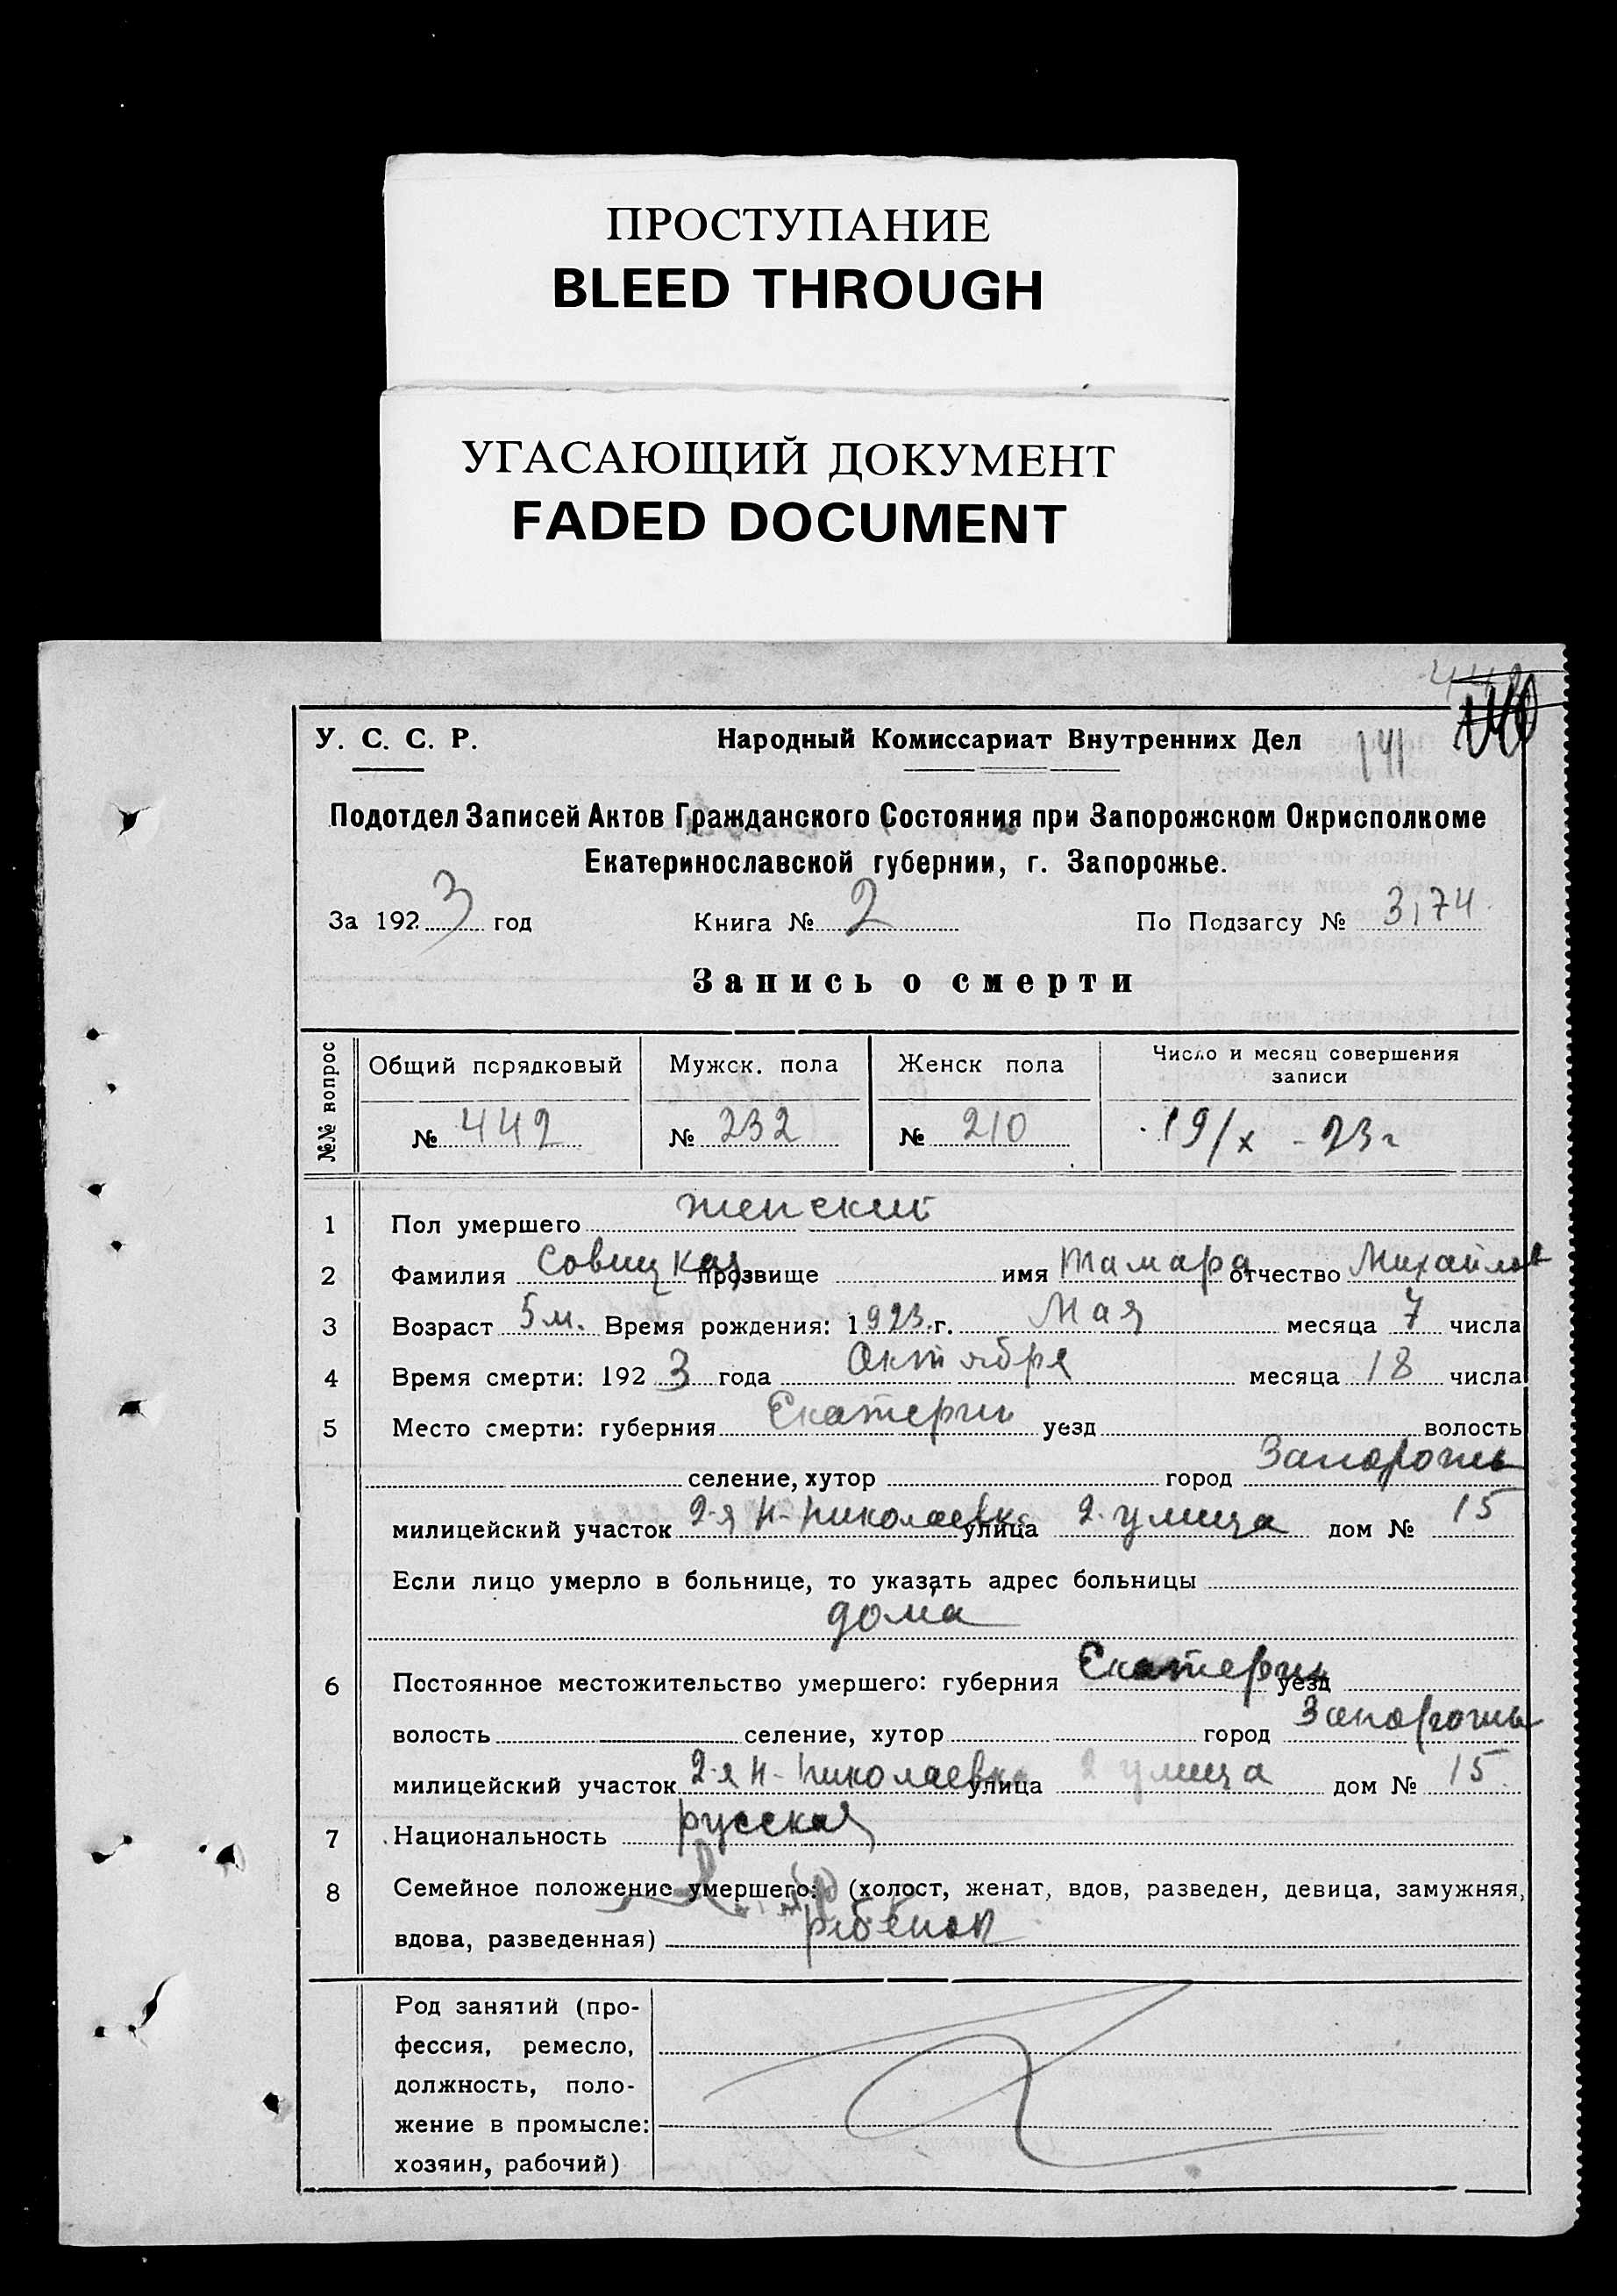 ПРОСТУПАНИЕ
BLEED THROUGH
УГАСАЮЩИЙ ДОКУМЕНТ
FADED DOCUMENT
У. С. С. Р. Народный Комиссариат Внутренних Дел 141
Подотдел Записей Актов Гражданского Состояния при Запорожском Окрисполкоме
Екатеринославской губернии, г. Запорожье.
За 1923 год Книга № 2 По Подзагсу № 3174
Запись о смерти
№№ вопрос Общий порядковый Мужск. пола Женск пола Число и месяц совершения
записи
№ 442 № 232 № 210 19/x - 23 г
1 Пол умершего женский
2 Фамилия Совицкая прозвище имя Тамара отчество Михайлов
3 Возраст 5 м. Время рождения: 1923 г. Мая месяца 7 числа
4 Время смерти: 1923 года Октября месяца 18 числа
5 Место смерти: губерния Екатерин уезд волость
селение, хутор город Запорожье
милицейский участок 2-я Н-Николаевка улица 2. улица дом № 15
Если лицо умерло в больнице, то указать адрес больницы
дома
6 Постоянное местожительство умершего: губерния Екатерин уезд
волость селение, хутор город Запорожье
милицейский участок 2-я Н-Николаевка улица 2 улица дом № 15
7 Национальность русская
8 Семейное положение умершего: (холост, женат, вдов, разведен, девица, замужняя,
вдова, разведенная) ребенок
Род занятий (про-
фессия, ремесло,
должность, поло-
жение в промысле:
хозяин, рабочий)